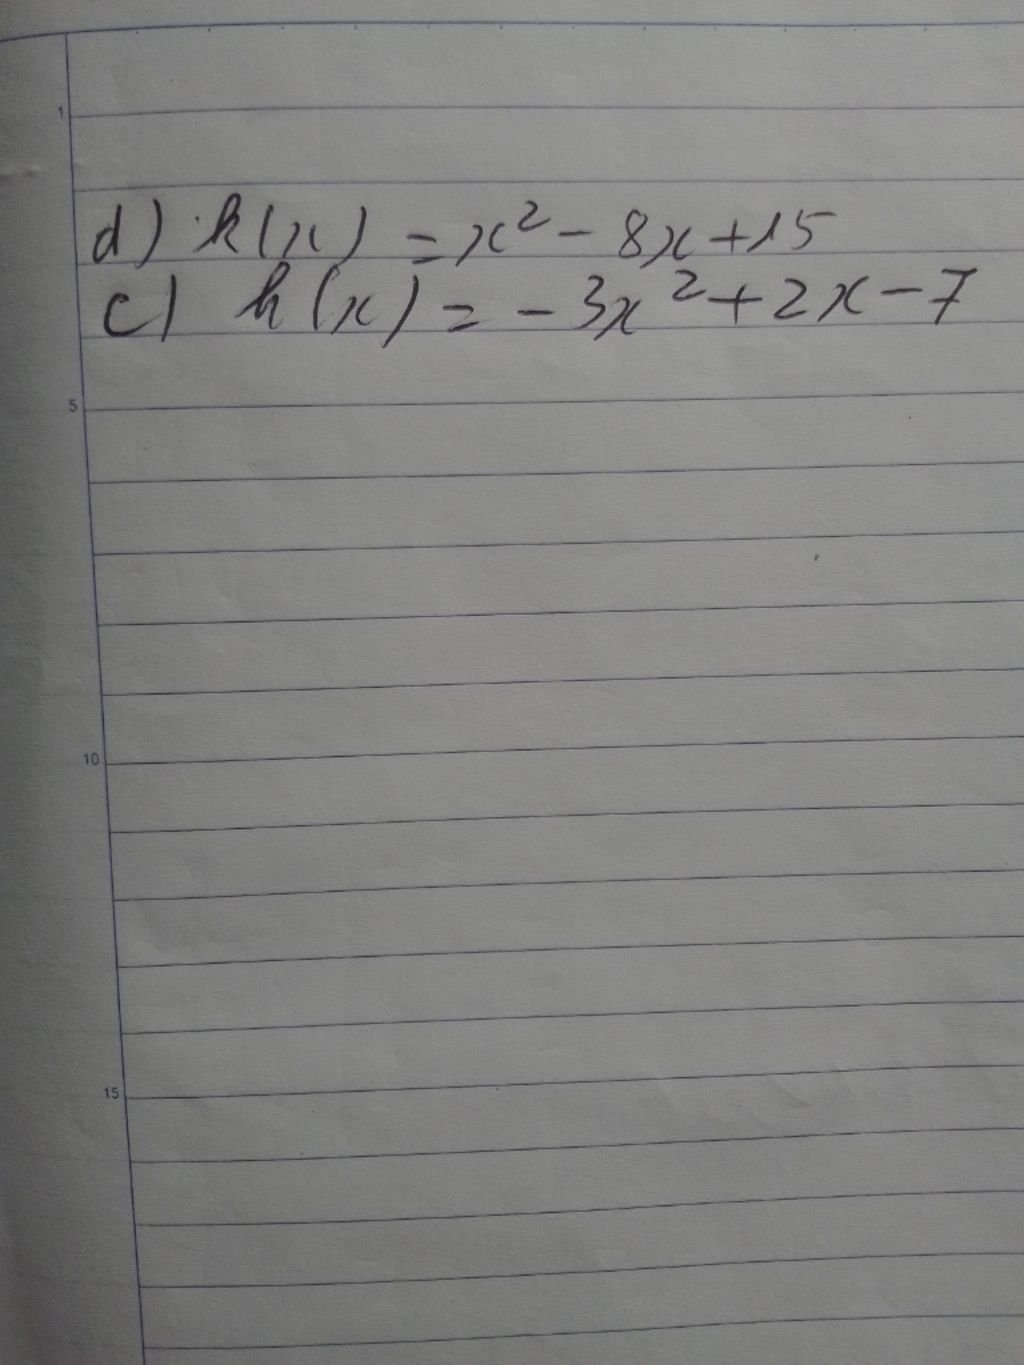 1
d) k(x) = x² - 8x + 15
c) h(x) = - 3x² + 2x - 7
5
10
15